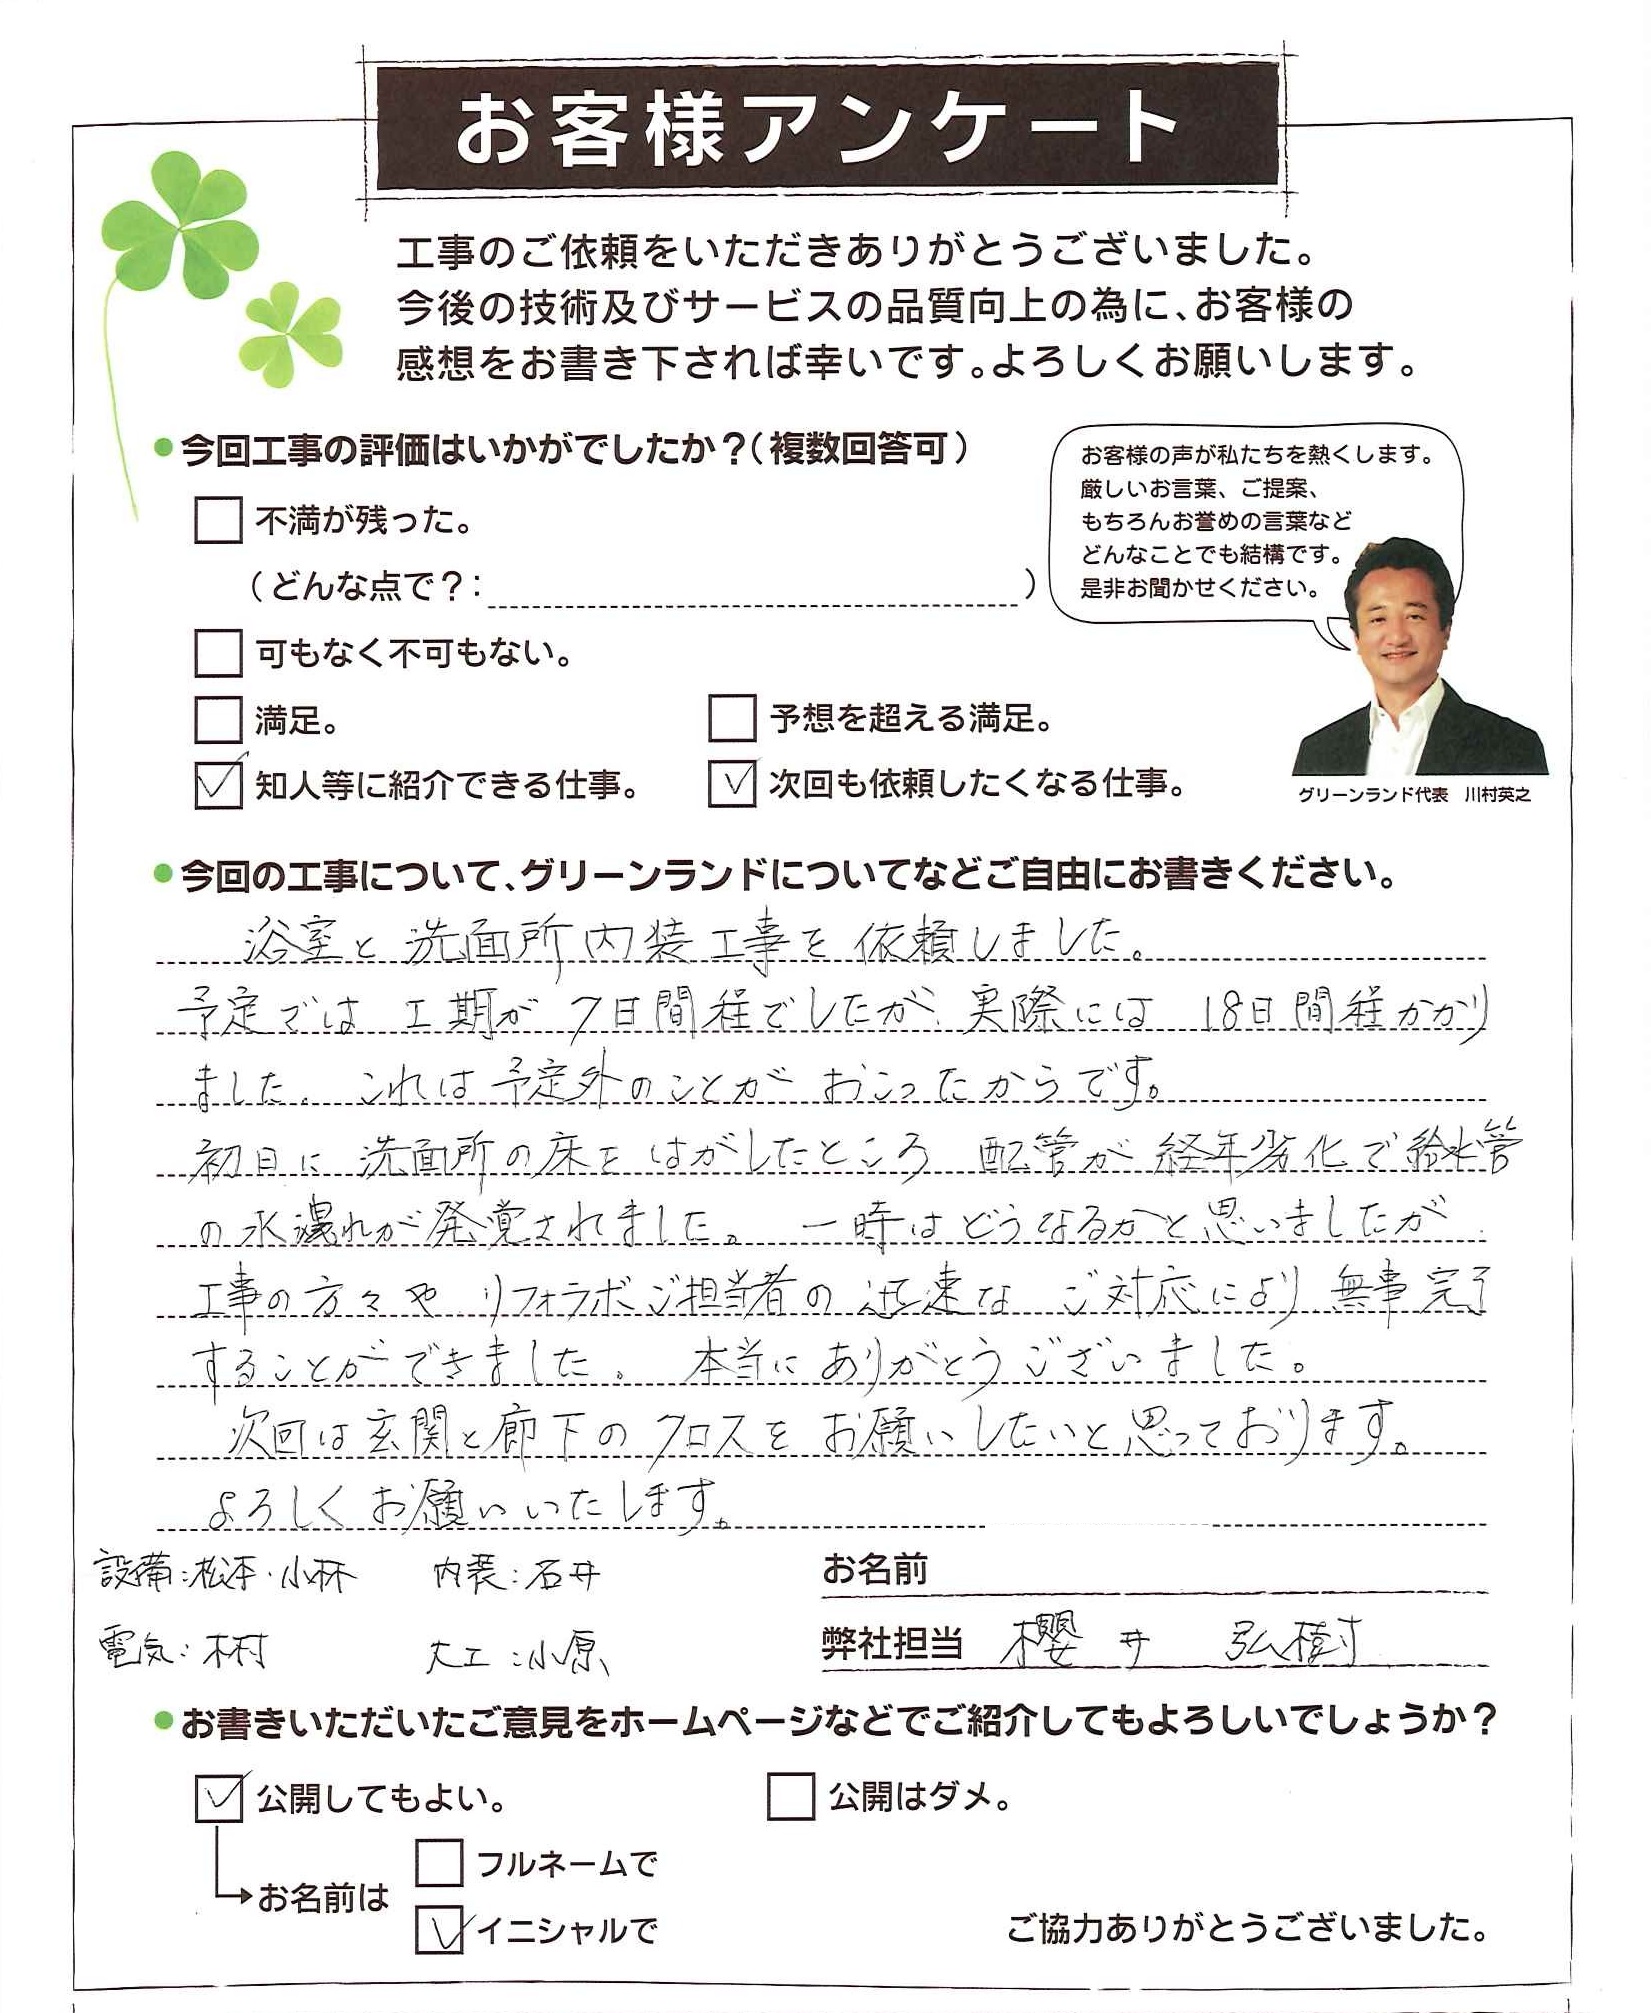 お客様アンケート
工事のご依頼をいただきありがとうございました。
今後の技術及びサービスの品質向上の為に、お客様の
感想をお書き下されば幸いです。よろしくお願いします。
●今回工事の評価はいかがでしたか？（複数回答可）
お客様の声が私たちを熱くします。
厳しいお言葉、ご提案、
もちろんお誉めの言葉など
どんなことでも結構です。
是非お聞かせください。
不満が残った。
（どんな点で？：　　　）
可もなく不可もない。
満足。
予想を超える満足。
知人等に紹介できる仕事。
次回も依頼したくなる仕事。
グリーンランド代表　川村英之
●今回の工事について、グリーンランドについてなどご自由にお書きください。
浴室と洗面所内装工事を依頼しました。
予定では工期が7日間程でしたが、実際には18日間程かかり
ました。これは予定外のことがおこったからです。
初日に洗面所の床をはがしたところ配管が経年劣化で給水管
の水漏れが発覚されました。一時はどうなるかと思いましたが
工事の方々やリフォラボご担当者の迅速なご対応により無事完了
することができました。本当にありがとうございました。
次回は玄関と廊下のクロスをお願いしたいと思っております。
よろしくお願いいたします。
設備：松本・小林　内装：石井
お名前
電気：木村　大工：小原
弊社担当　櫻井　弘樹
●お書きいただいたご意見をホームページなどでご紹介してもよろしいでしょうか？
公開してもよい。
公開はダメ。
お名前は
フルネームで
イニシャルで
ご協力ありがとうございました。